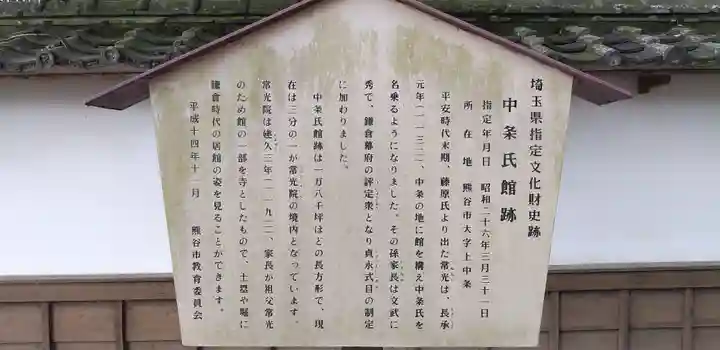 埼玉県指定文化財史跡
中条氏館跡
指定年月日 昭和二十六年三月三十一日
所在地 熊谷市大字上中条
平安時代末期、藤原氏より出た常光は、長承
元年(一一三二)、中条の地に館を構え中条氏を
名乗るようになりました。その孫家長は文武に
秀で、鎌倉幕府の評定衆となり貞永式目の制定
に加わりました。
中条氏館跡は一万八千坪ほどの長方形で、現
在は三分の一が常光院の境内となっています。
常光院は建久三年(一一九二)、家長が祖父常光
のため館の一部を寺としたもので、土塁や堀に
鎌倉時代の居館の姿を見ることができます。
平成十四年十二月 熊谷市教育委員会